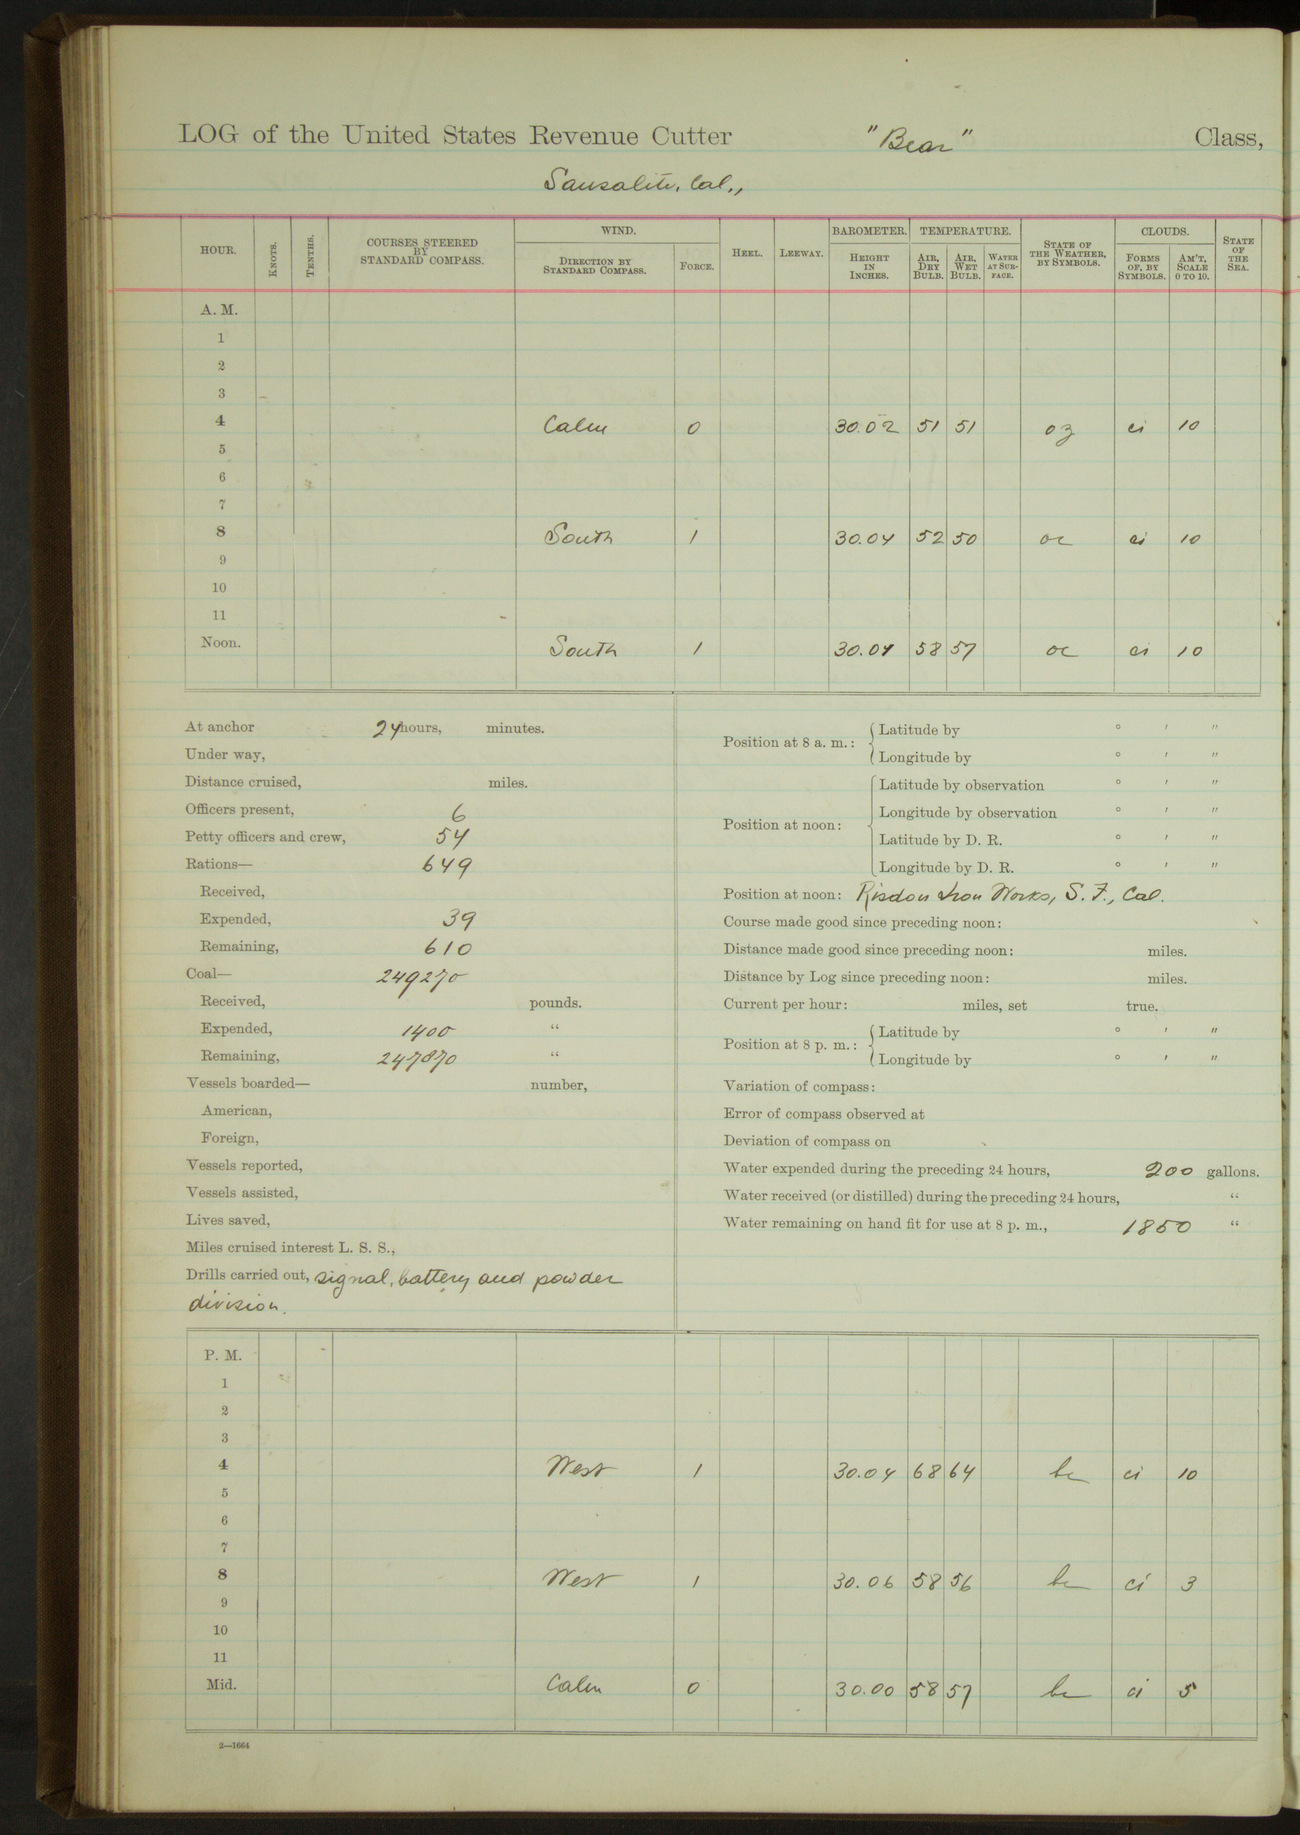 LOG of the United States Revenue Cutter "Bear" Class,
Sausalito, Cal.,
HOUR. KNOTS. TENTHS. COURSES STEERED BY STANDARD COMPASS. WIND. DIRECTION BY STANDARD COMPASS. FORCE. HEEL. LEEWAY. BAROMETER. HEIGHT IN INCHES. TEMPERATURE. AIR, DRY BULB. AIR, WET BULB. WATER AT SURFACE. STATE OF THE WEATHER, BY SYMBOLS. CLOUDS. FORMS OF, BY SYMBOLS. AM'T, SCALE 0 TO 10. STATE OF THE SEA.
A. M.
1
2
3
4 Calm 0 30.02 51 51 oz ci 10
5
6
7
8 South 1 30.04 52 50 oc ci 10
9
10
11
Noon. South 1 30.04 58 57 oc ci 10
At anchor 24 hours, minutes.
Under way,
Distance cruised, miles.
Officers present, 6
Petty officers and crew, 54
Rations— 649
Received,
Expended, 39
Remaining, 610
Coal— 249270
Received, pounds.
Expended, 1400 "
Remaining, 247870 "
Vessels boarded— number,
American,
Foreign,
Vessels reported,
Vessels assisted,
Lives saved,
Miles cruised interest L. S. S.,
Drills carried out, signal, battery and powder
division.
Position at 8 a. m.: Latitude by ° ' "
Longitude by ° ' "
Position at noon: Latitude by observation ° ' "
Longitude by observation ° ' "
Latitude by D. R. ° ' "
Longitude by D. R. ° ' "
Position at noon: Risdon Iron Works, S. F., Cal.
Course made good since preceding noon:
Distance made good since preceding noon: miles.
Distance by Log since preceding noon: miles.
Current per hour: miles, set true.
Position at 8 p. m.: Latitude by ° ' "
Longitude by ° ' "
Variation of compass:
Error of compass observed at
Deviation of compass on
Water expended during the preceding 24 hours, 200 gallons.
Water received (or distilled) during the preceding 24 hours, "
Water remaining on hand fit for use at 8 p. m., 1850 "
P. M.
1
2
3
4 West 1 30.04 68 64 bc ci 10
5
6
7
8 West 1 30.06 58 56 bc ci 3
9
10
11
Mid. Calm 0 30.00 58 57 bc ci 5
2—1664